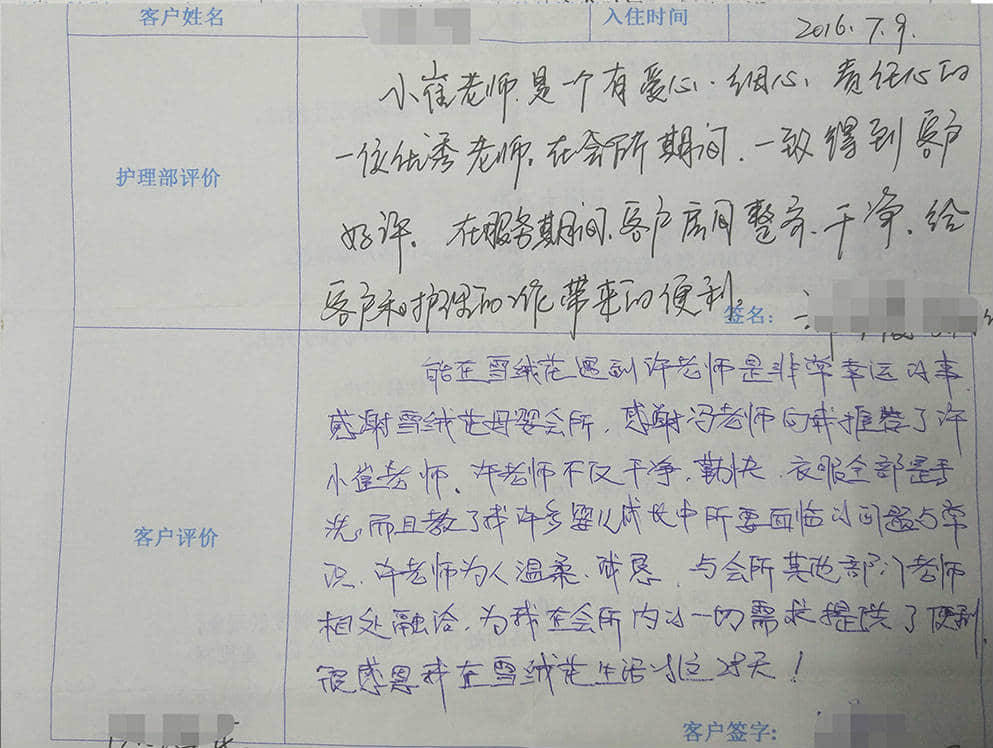 客户姓名 入住时间 2016.7.9.
小崔老师是一个有爱心、细心、责任心的
一位优秀老师,在会所期间,一致得到客户
护理部评价
好评。在服务期间,客户房间整齐、干净,给
客户和护理的工作带来的便利。
签名:
能在雪绒花遇到许老师是非常幸运的事
感谢雪绒花母婴会所,感谢冯老师向我推荐了许
小崔老师。许老师不仅干净,勤快,衣服全部是手
洗,而且教了我许多婴儿成长中所要面临的问题与常
客户评价
识,许老师为人温柔、诚恳,与会所其他部门老师
相处融洽,为我在会所内的一切需求提供了便利
很感恩我在雪绒花生活的这28天!
客户签字: